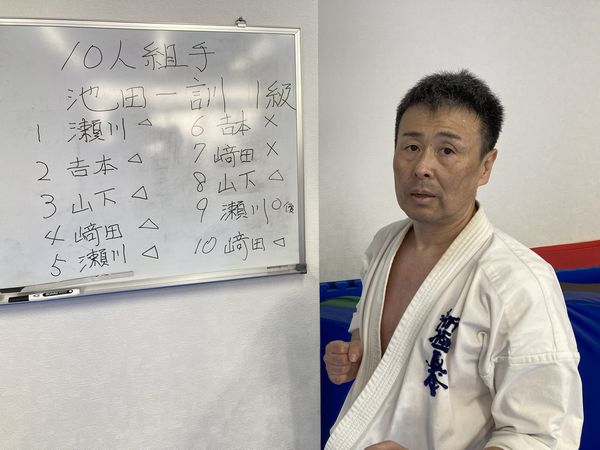 10人組手
池田一訓 1級
1 瀬川 △
2 吉本 △
3 山下 △
4 﨑田 △
5 瀬川 △
6 吉本 ×
7 﨑田 ×
8 山下 △
9 瀬川 ○優
10 﨑田 △
新極真会